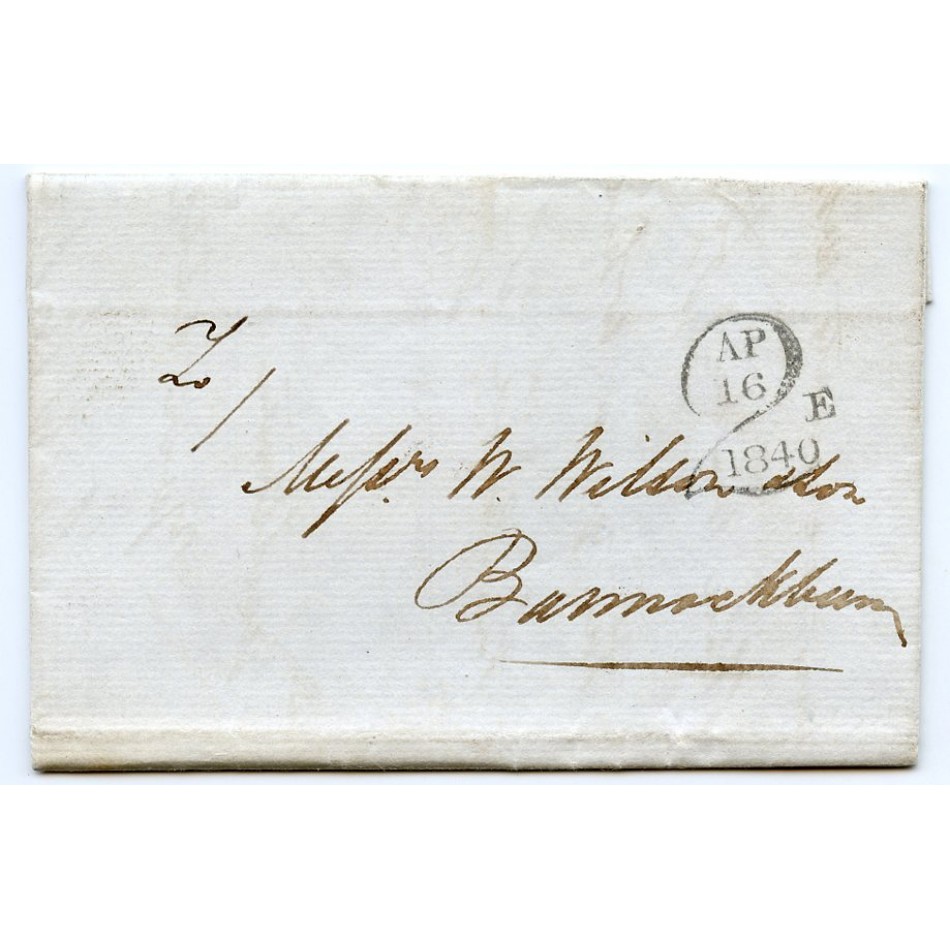 AP
16
E
1840
To/
Messrs. W. Wilson & Son
Bannockburn